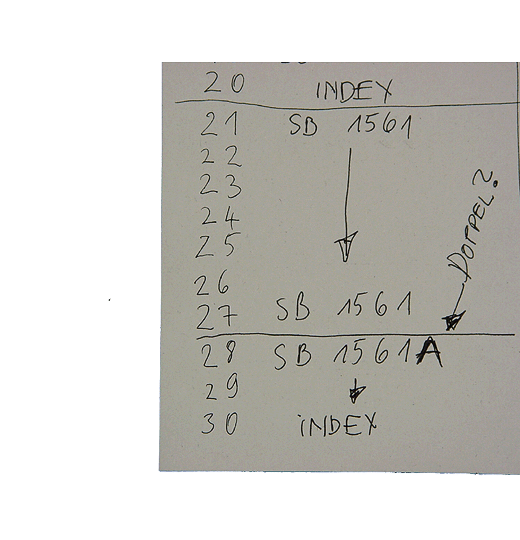 20 INDEX
21 SB 1561
22
23
24
25
26
27 SB 1561
DOPPEL?
28 SB 1561A
29
30 INDEX